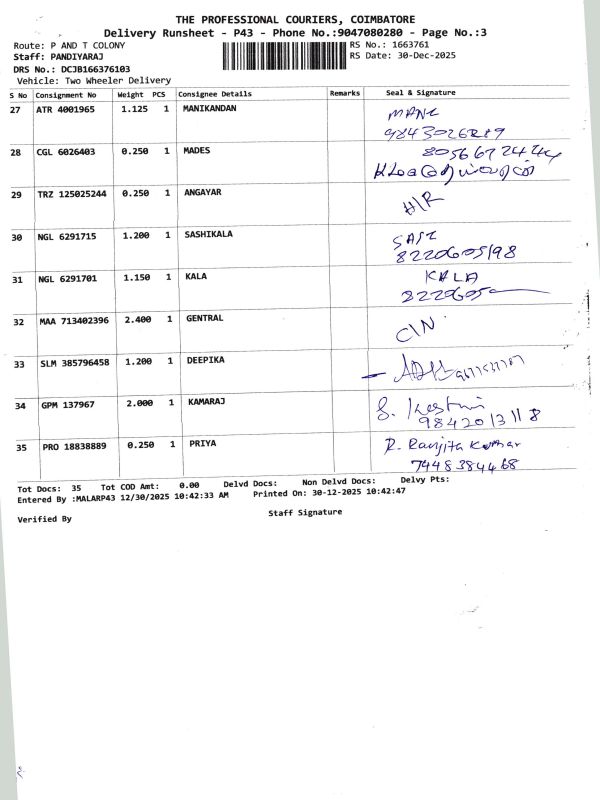 THE PROFESSIONAL COURIERS, COIMBATORE
Delivery Runsheet - P43 - Phone No.:9047080280 - Page No.:3
Route: P AND T COLONY RS No.: 1663761
Staff: PANDIYARAJ RS Date: 30-Dec-2025
DRS No.: DCJB166376103
Vehicle: Two Wheeler Delivery
S No Consignment No Weight PCS Consignee Details Remarks Seal & Signature
27 ATR 4001965 1.125 1 MANIKANDAN MANI
28 CGL 6026403 0.250 1 MADES
29 TRZ 125025244 0.250 1 ANGAYAR H/R
30 NGL 6291715 1.200 1 SASHIKALA SASI
8220605198
31 NGL 6291701 1.150 1 KALA KALA
8220605
32 MAA 713402396 2.400 1 GENTRAL C/N
33 SLM 385796458 1.200 1 DEEPIKA
34 GPM 137967 2.000 1 KAMARAJ
9842013118
35 PRO 18838889 0.250 1 PRIYA R. Ranjita Kumar
7448384468
Tot Docs: 35 Tot COD Amt: 0.00 Delvd Docs: Non Delvd Docs: Delvy Pts:
Entered By :MALARP43 12/30/2025 10:42:33 AM Printed On: 30-12-2025 10:42:47
Verified By Staff Signature